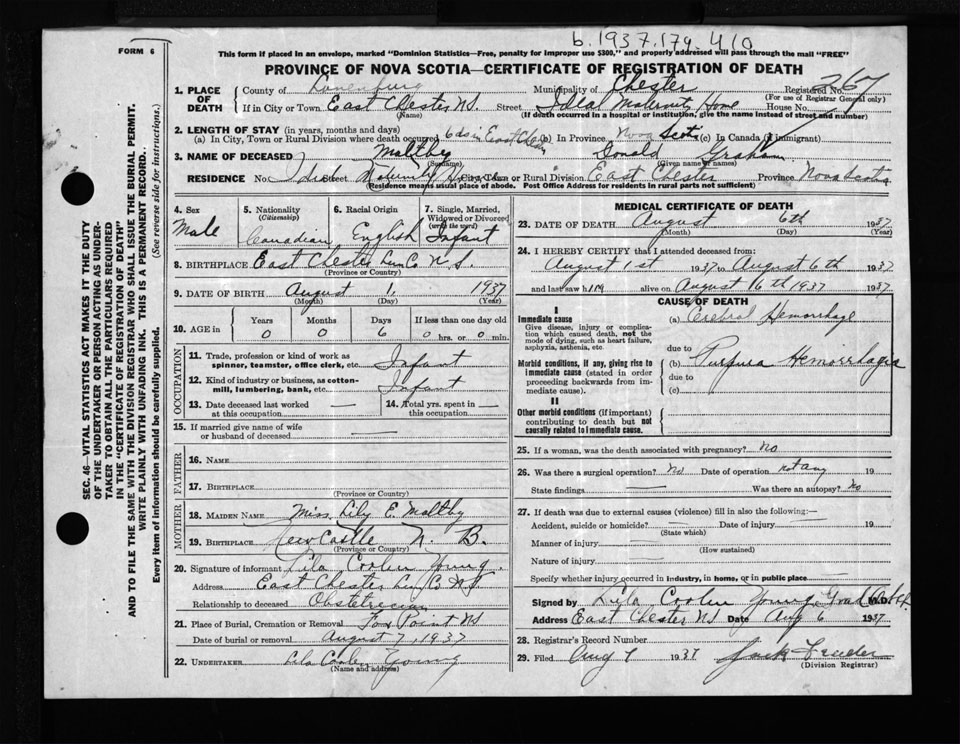 b. 1937. 174. 410
FORM 6
This form if placed in an envelope, marked "Dominion Statistics—Free, penalty for improper use $300," and properly addressed will pass through the mail "FREE"
PROVINCE OF NOVA SCOTIA—CERTIFICATE OF REGISTRATION OF DEATH
1. PLACE OF DEATH County of Lunenburg Municipality of Chester Registered No. 267
(For use of Registrar General only)
If in City or Town East Chester N.S. Street Ideal Maternity Home House No.
(Name) (If death occurred in a hospital or institution, give the name instead of street and number)
2. LENGTH OF STAY (in years, months and days)
(a) In City, Town or Rural Division where death occurred 6 ds in East Chester (b) In Province Nova Scotia (c) In Canada (if immigrant)
3. NAME OF DECEASED Maltby Donald Graham
(Surname) (Given name or names)
RESIDENCE No. Ideal Street Maternity Home City, Town or Rural Division East Chester Province Nova Scotia
(Residence means usual place of abode. Post Office Address for residents in rural parts not sufficient)
4. Sex Male
5. Nationality (Citizenship) Canadian
6. Racial Origin English
7. Single, Married, Widowed or Divorced (write the word) Infant
8. BIRTHPLACE East Chester Lun Co N.S.
(Province or Country)
9. DATE OF BIRTH August 1, 1937
(Month) (Day) (Year)
10. AGE in Years Months Days If less than one day old
0 0 6 0 hrs. or 0 min.
OCCUPATION
11. Trade, profession or kind of work as spinner, teamster, office clerk, etc. Infant
12. Kind of industry or business, as cotton-mill, lumbering, bank, etc. Infant
13. Date deceased last worked at this occupation — 14. Total yrs. spent in this occupation —
15. If married give name of wife or husband of deceased —
FATHER
16. NAME —
17. BIRTHPLACE —
(Province or Country)
MOTHER
18. MAIDEN NAME Miss Lily E. Maltby
19. BIRTHPLACE New Castle N. B.
(Province or Country)
20. Signature of informant Lila Coolen Young.
Address East Chester Lun Co N.S
Relationship to deceased Obstetrecian
21. Place of Burial, Cremation or Removal Fox Point NS
Date of burial or removal August 7, 1937
22. UNDERTAKER Lila Coolen Young
(Name and address)
MEDICAL CERTIFICATE OF DEATH
23. DATE OF DEATH August 6th 1937
(Month) (Day) (Year)
24. I HEREBY CERTIFY that I attended deceased from:
August 1st 1937 to August 6th 1937
and last saw him alive on August 6th 1937 1937
CAUSE OF DEATH
I
Immediate cause
Give disease, injury or complication which caused death, not the mode of dying, such as heart failure, asphyxia, asthenia, etc.
(a) Cerebral Hemorrhage
due to
Morbid conditions, if any, giving rise to immediate cause (stated in order proceeding backwards from immediate cause).
(b) Purpura Hemorrhagia
due to
(c)
II
Other morbid conditions (if important) contributing to death but not causally related to immediate cause.
25. If a woman, was the death associated with pregnancy? No
26. Was there a surgical operation? No Date of operation not any 19
State findings — Was there an autopsy? No
27. If death was due to external causes (violence) fill in also the following:—
Accident, suicide or homicide? — Date of injury — 19
(State which)
Manner of injury —
(How sustained)
Nature of injury —
Specify whether injury occurred in industry, in home, or in public place
Signed by Lila Coolen Young M.D.
Address East Chester NS Date Aug 6 1937
28. Registrar's Record Number
29. Filed Aug 7 1937
(Division Registrar)
SEC. 46—VITAL STATISTICS ACT MAKES IT THE DUTY
OF THE UNDERTAKER OR PERSON ACTING AS UNDER-
TAKER TO OBTAIN ALL THE PARTICULARS REQUIRED
IN THE "CERTIFICATE OF REGISTRATION OF DEATH"
AND TO FILE THE SAME WITH THE DIVISION REGISTRAR WHO SHALL ISSUE THE BURIAL PERMIT.
WRITE PLAINLY WITH UNFADING INK. THIS IS A PERMANENT RECORD.
Every item of information should be carefully supplied. (See reverse side for instructions.)